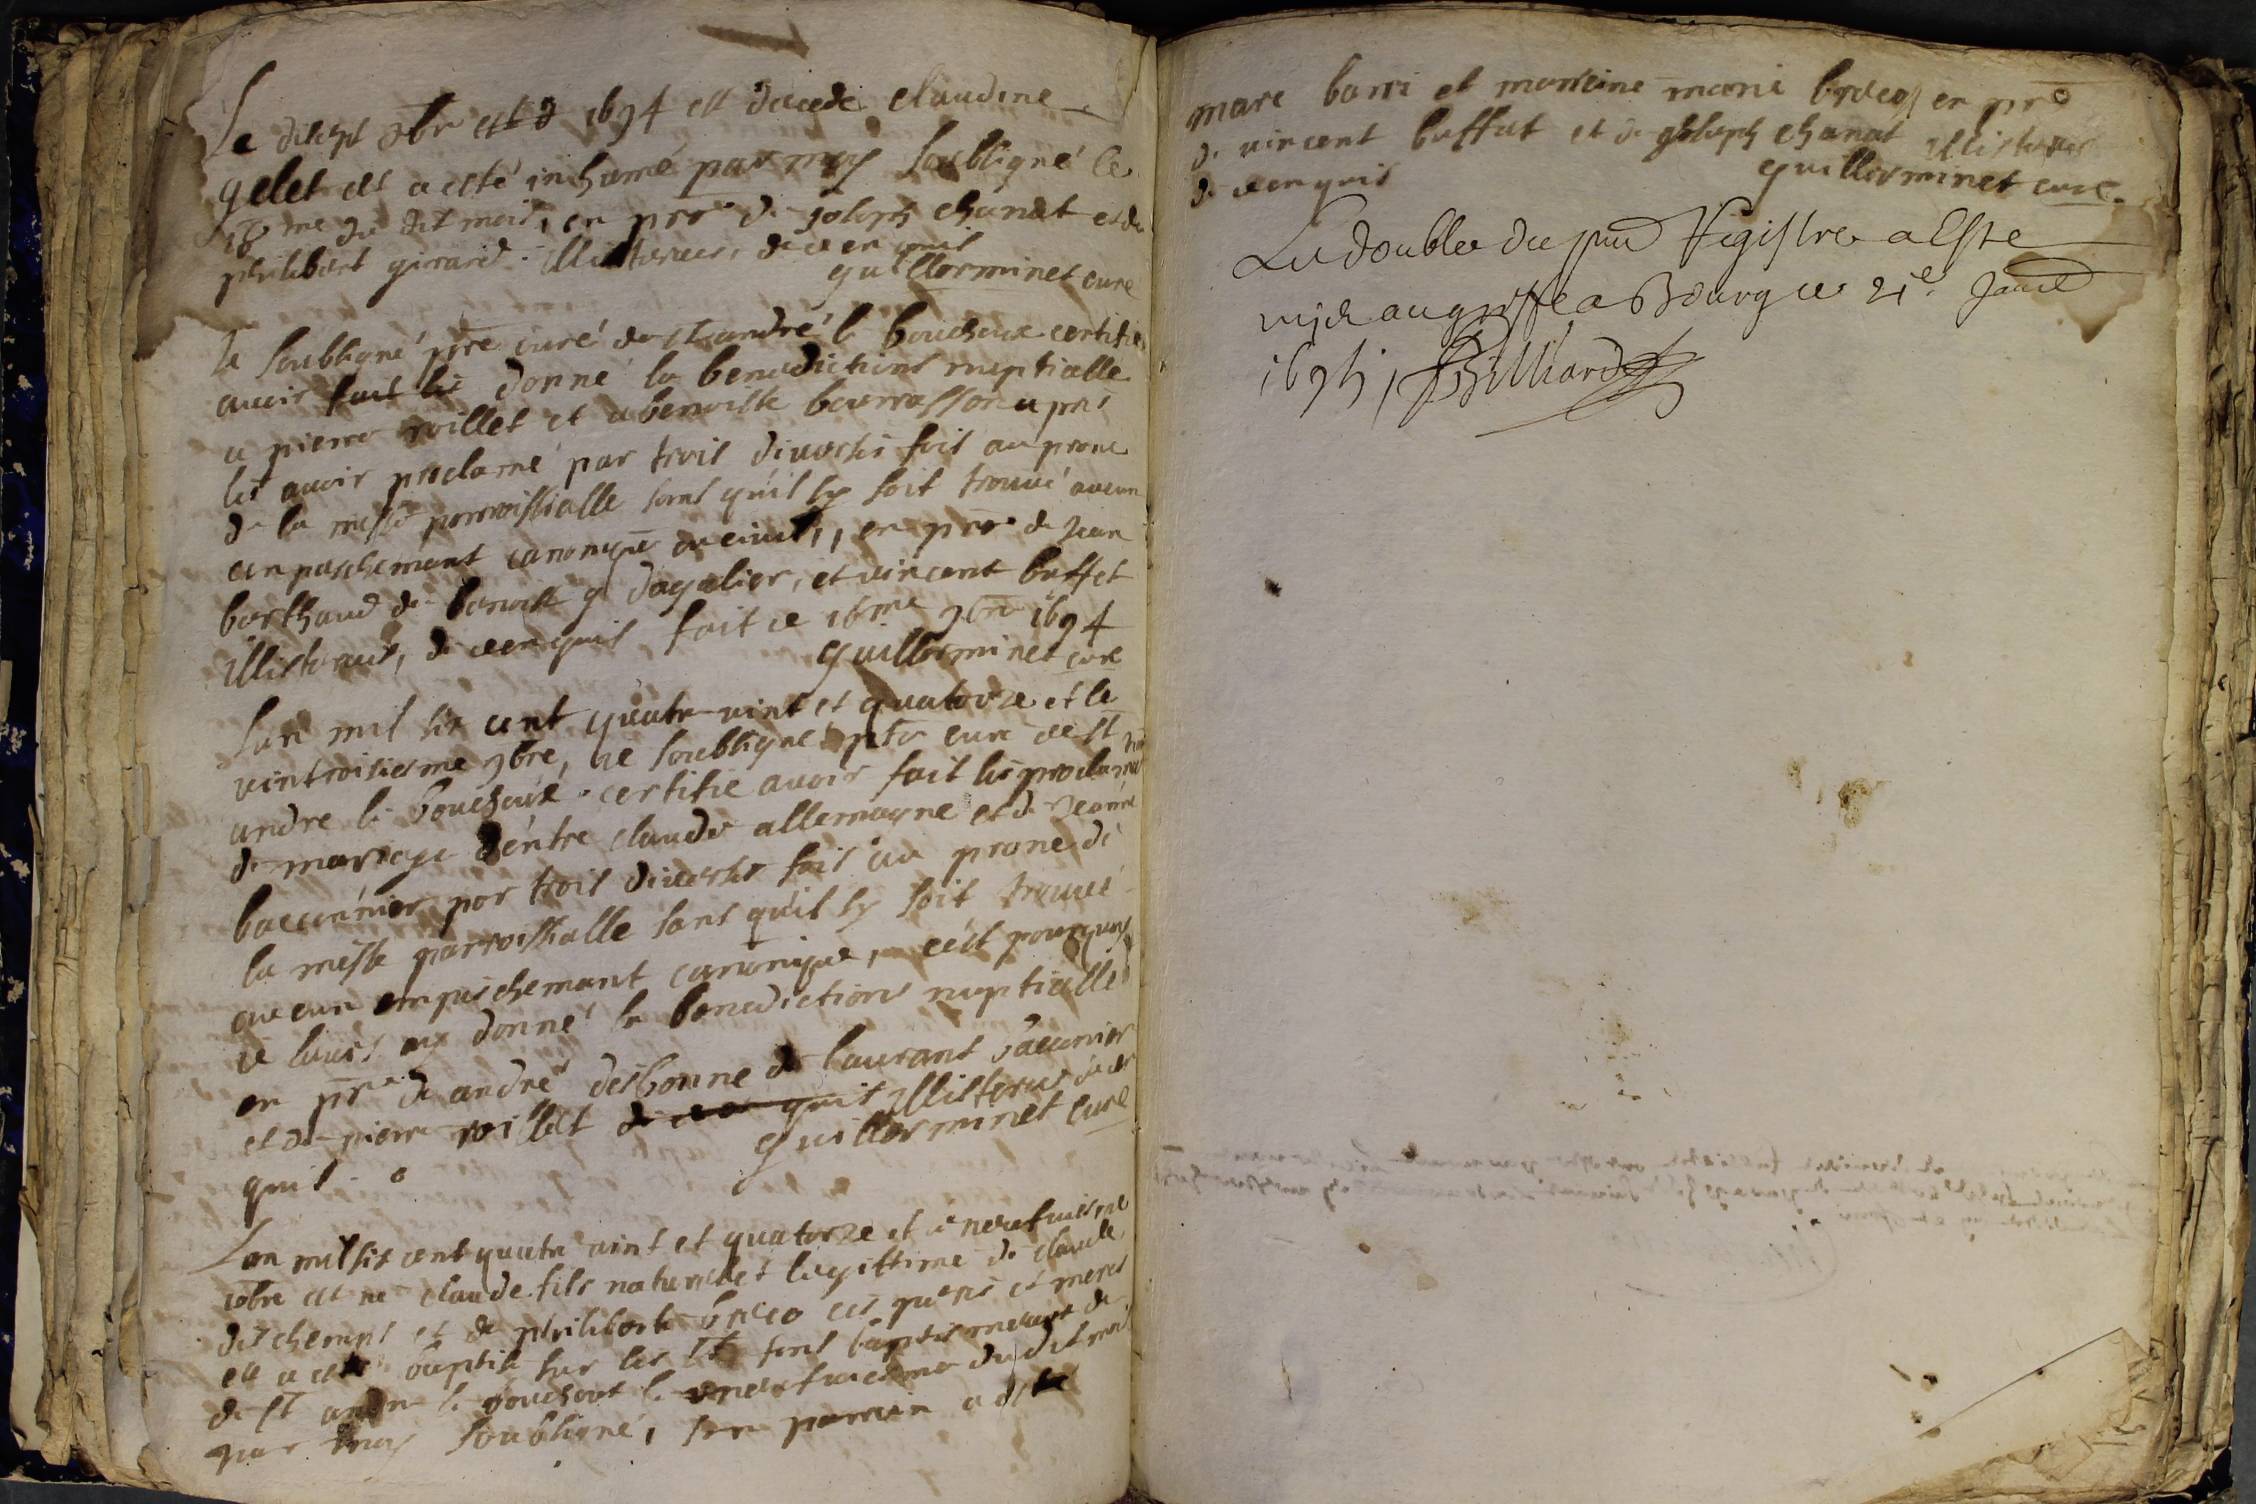 Le disept 9br 1694 est decede claudine
gelet et a esté inhumé par moy soubsigné le
18me du dit mois, en pnce de joseph chanat et de
philibert girard illisterees, de ce enquis
guillerminet curé
Je soubsigné pbre curé de st andré le bouchoux certifie
avoir donné la benedictions nuptialle
a pierre roillet et a benoiste bourrasson apres
les avoir proclamé par trois diverses fois au prone
de la messe parroissialle sans quil sy soit trouvé aucun
empaschemant canonique ou civil, en pnce de Jean
berthaud de benoist dagalier, et vincent buffet
illisterees, de ce enquis fait ce 16me 9bre 1694
guillerminet curé
Lan mil six cent quatre vint et quatorze et le
vintroisiesme 9bre, Je soubsigné pbr curé de st
andre le bouchoux certifie avoir fait les proclama
de mariage d'entre claude allemagne et de Jeanne
baccunnier par trois diverses fois au prone de
la messe parroissialle sans quil sy soit trouvé
aucun empeschemant canonique, c'est pourquoy
Je leurs ay donné la benedictions nuptialle
en pnce de andré desbonne de laurant baccunier
et de pierre roillet de ce enquis illisterees de ce en
quis
guillerminet curé
Lan mil six cent quatre vint et quatorze et neufviesme
xbre est né claude fils naturel et legittime de claude
deschemps et de philiberte breco ses peres et meres
et a esté baptisé sur les sts fons baptismeaux de
de st andre le bouchoux le neufviesme du dit moi
par moy soubsigné, son parrain a esté
marc barri et marreine marie breco en pnce
de vincent buffet et de joseph chanat illisterees
de ce enquis
guillerminet curé
Le double du pnt Registre a Esté
mis au greffe a Bourg ce 21e Janvr
1695, Billiard